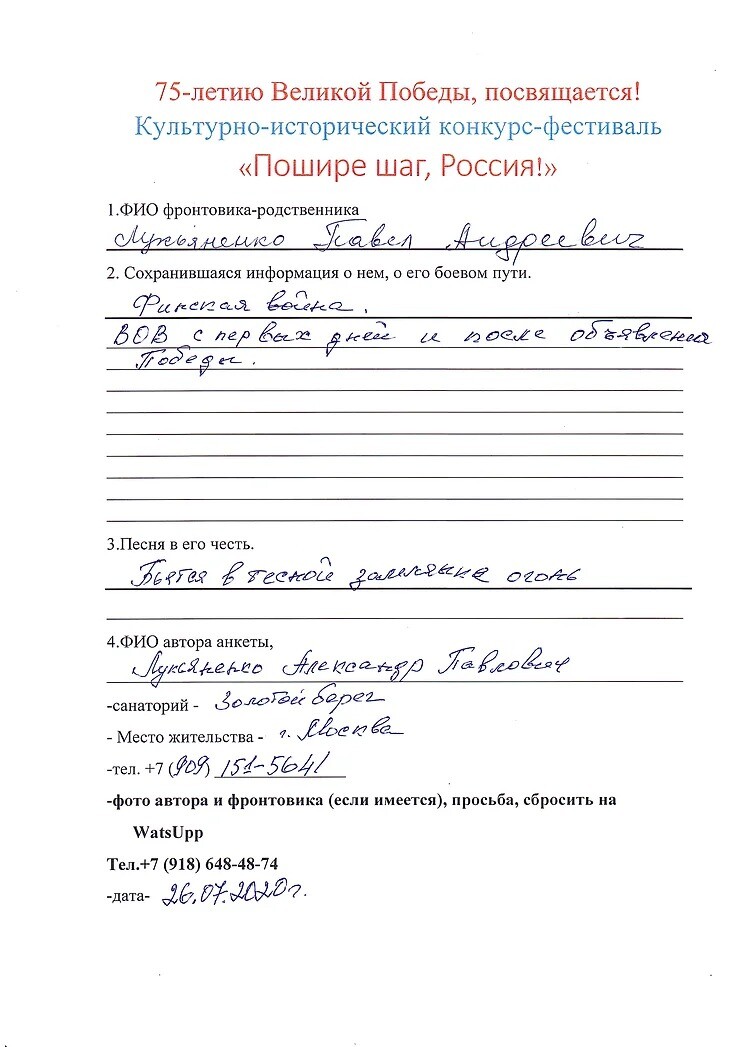 75-летию Великой Победы, посвящается!
Культурно-исторический конкурс-фестиваль
«Пошире шаг, Россия!»
1.ФИО фронтовика-родственника
Лукьяненко Павел Андреевич
2. Сохранившаяся информация о нем, о его боевом пути.
Финская война.
ВОВ с первых дней и после объявления
Победы.
3.Песня в его честь.
Бьётся в тесной землянке огонь
4.ФИО автора анкеты,
Лукьяненко Александр Павлович
-санаторий - Золотой берег
- Место жительства - г. Москва
-тел. +7 (909) 151-5641
-фото автора и фронтовика (если имеется), просьба, сбросить на
WatsUpp
Тел.+7 (918) 648-48-74
-дата- 26.07.2020г.